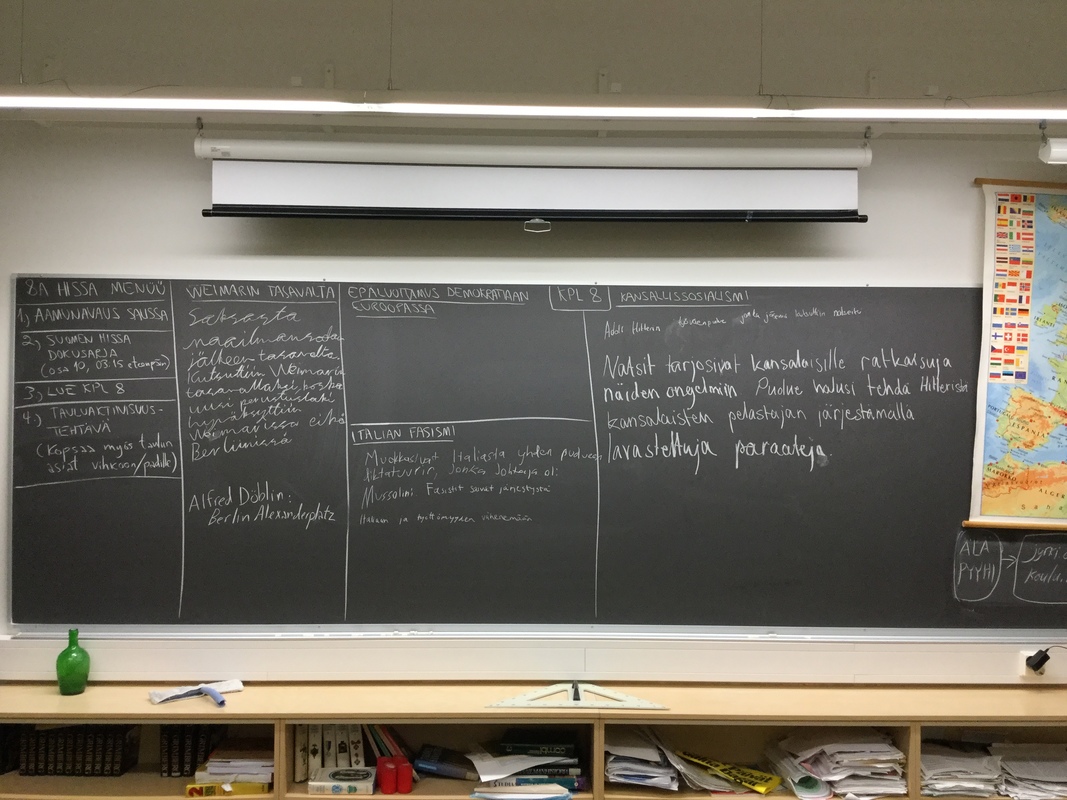 8A HISSA MENUU
1) AAMUNAVAUS SALISSA
2) SUOMEN HISSA
DOKUSARJA
(osa 10, 03:15 eteenpäin)
3) LUE KPL 8
4) TAULUAKTIIVISUUS-
TEHTÄVÄ
(Kopsaa myös taulun
asiat vihkoon/padille)
WEIMARIN TASAVALTA
Saksasta
maailmansodan
jälkeen tasavalta.
Kutsuttiin Weimarin
tasavallaksi, koska
uusi perustuslaki
hyväksyttiin
Weimarissa eikä
Berliinissä
Alfred Döblin:
Berlin Alexanderplatz
EPÄLUOTTAMUS DEMOKRATIAAN
EUROOPASSA
ITALIAN FASISMI
Muokkasivat Italiasta yhden puolueen
diktatuurin, jonka johtaja oli
Mussolini. Fasistit saivat järjestystä
Italiaan ja työttömyyden vähenemään
KPL 8
KANSALLISSOSIALISMI
Adolf Hitlerin
Natsit tarjosivat kansalaisille ratkaisuja
näiden ongelmiin Puolue halusi tehdä Hitleristä
kansalaisten pelastajan järjestämällä
lavastettuja paraateja.
ÄLÄ
PYYHI
ESPANJA